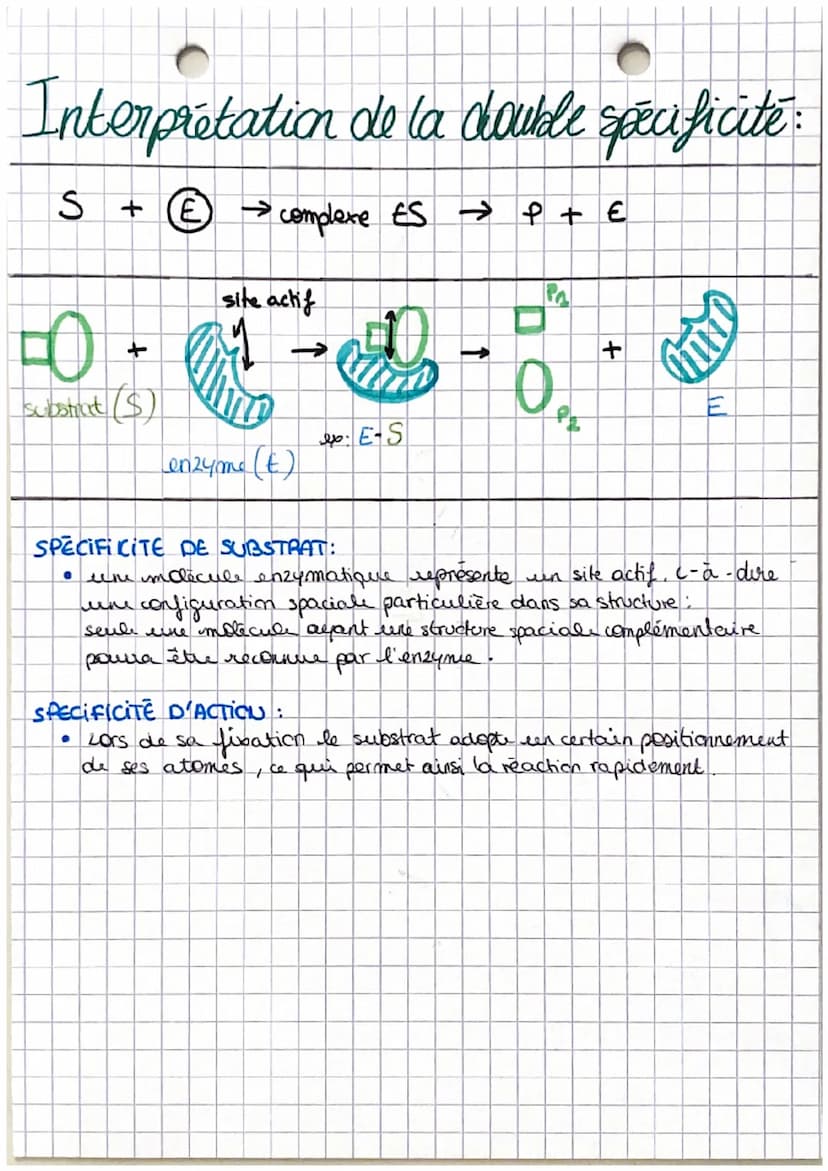 Interprétation de la double spécificité :
S + E → complexe ES → P + E
site actif
P1
+ → → +
substrat (S)
P2
E
ex: E-S
enzyme (E)
SPÉCIFICITÉ DE SUBSTRAT:
• une molécule enzymatique représente un site actif, c-à-dire
une configuration spaciale particulière dans sa structure :
seule une molécule ayant une structure spaciale complémentaire
pourra être reconnue par l'enzyme.
SPECIFICITÉ D'ACTION :
• Lors de sa fixation le substrat adopte un certain positionnement
de ses atomes, ce qui permet ainsi la réaction rapidement.